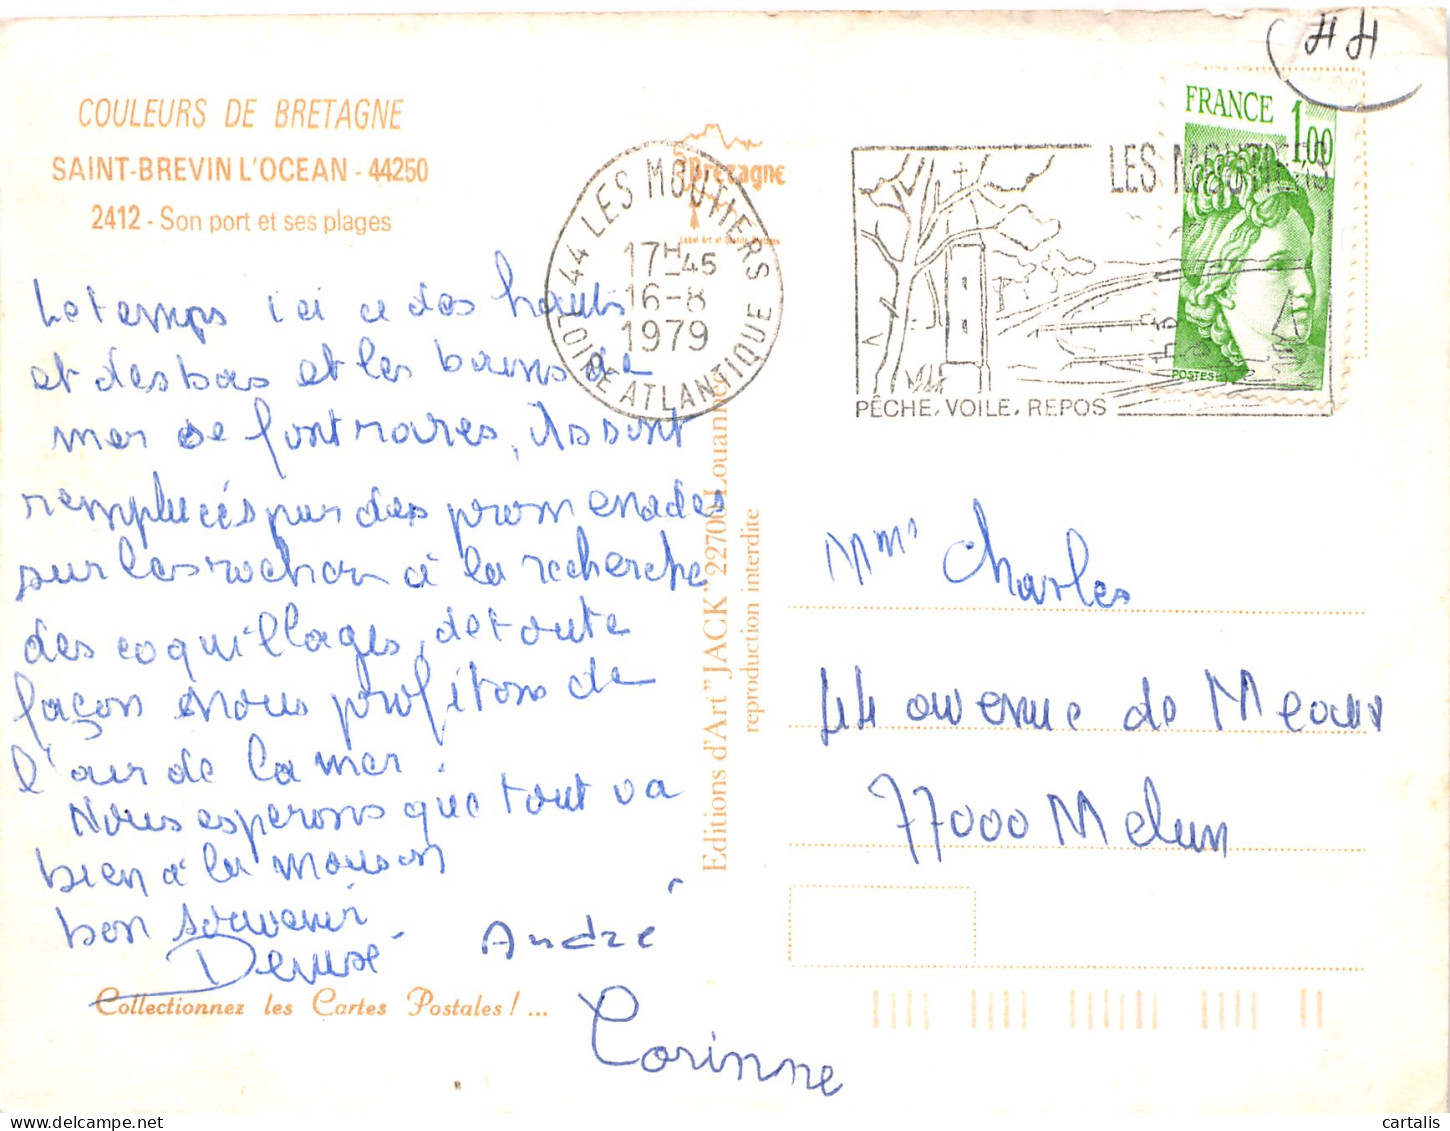 HH
COULEURS DE BRETAGNE
SAINT-BREVIN L'OCEAN - 44250
2412 - Son port et ses plages
Bretagne
44 LES MOUTIERS
17H-45
16-8
1979
LOIRE ATLANTIQUE
LES MOUTIERS
PÊCHE, VOILE, REPOS
FRANCE 1,00
POSTES
Le temps ici a des hauts
et des bas et les bains de
mer se font rares, ils sont
remplacés par des promenades
sur les rocher à la recherche
des coquillages, de toute
façon nous profitons de
l'air de la mer.
Nous esperons que tout va
bien à la maison
bon souvenir
Denise
André
Corinne
Collectionnez les Cartes Postales ! ...
Editions d'Art "JACK" 22700 Louannec
reproduction interdite
Charles
44 avenue de Meaux
77000 Melun
delcampe.net
cartalis